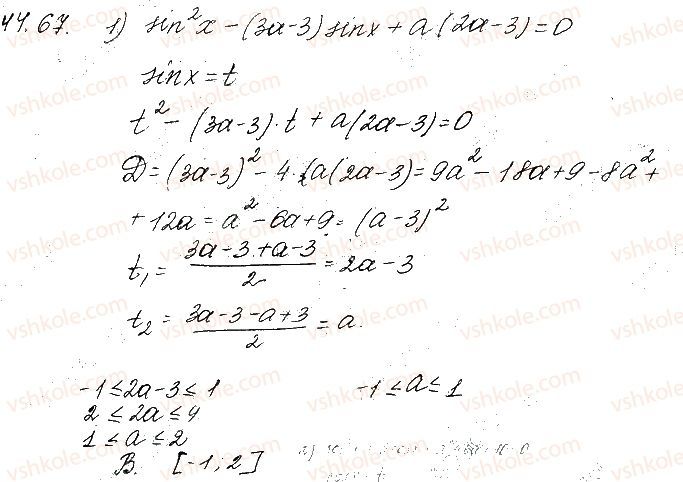 44.67. 1) sin²x - (3a-3) sinx + a(2a-3) = 0
sinx = t
t² - (3a-3)·t + a(2a-3) = 0
D = (3a-3)² - 4·(a(2a-3) = 9a² - 18a + 9 - 8a² +
+ 12a = a² - 6a + 9 = (a-3)²
t₁ = (3a-3+a-3)/2 = 2a-3
t₂ = (3a-3-a+3)/2 = a.
-1 ≤ 2a-3 ≤ 1 -1 ≤ a ≤ 1
2 ≤ 2a ≤ 4
1 ≤ a ≤ 2
В. [-1, 2]
vshkole.com